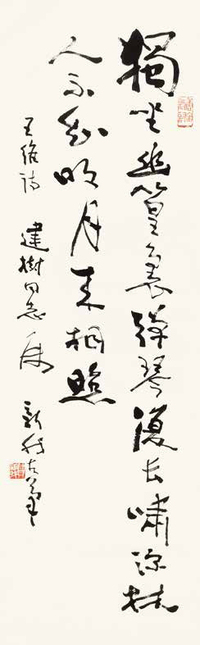 獨坐幽篁裏彈琴復長嘯深林
人不知明月来相照
王維詩 建樹同志属 新我左筆